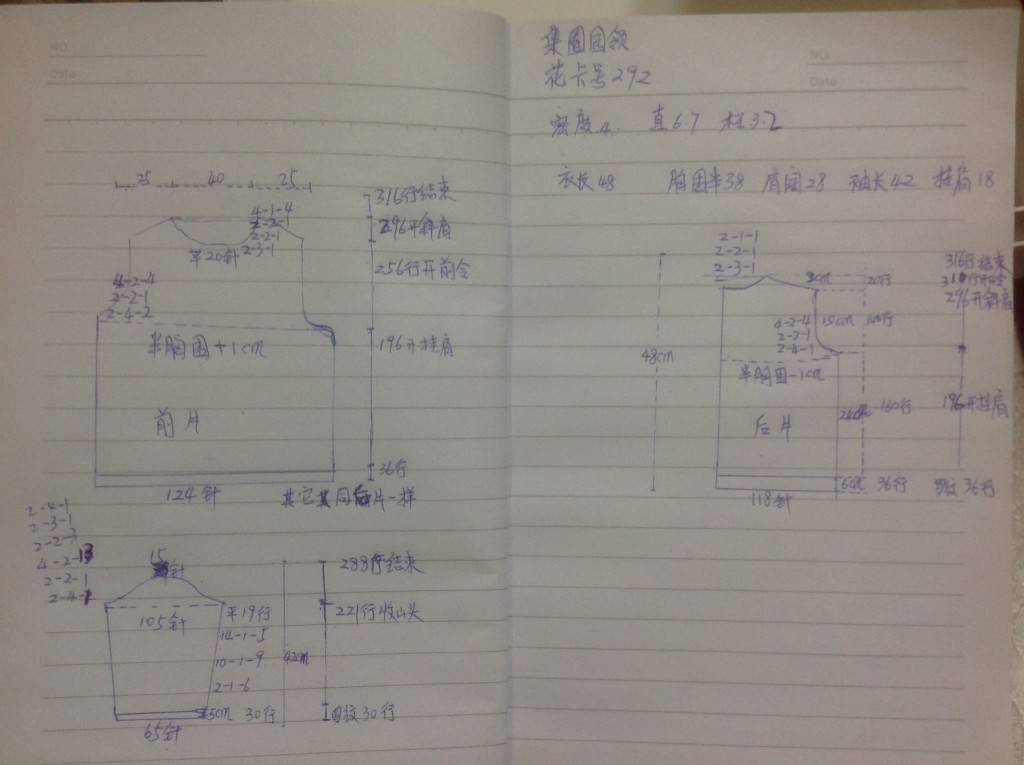 NO.
Date
25 40 25
4-1-4
2-2-1
2-2-1
2-3-1
平20针
316行结束
296开斜肩
256行开前令
4-2-4
2-2-1
2-4-2
半胸围+1cm
196开挂肩
前片
36行
124针
其它同后片一样
2-4-1
2-3-1
2-2-3
4-2-13
2-2-1
2-4-1
15针
288行结束
105针
平19行
221行收山头
14-1-5
10-1-9
42cm
2-1-6
5cm 30行
30行
65针
集圈园纹
花卡号292
NO.
Date
密度4. 直6.7 柱3.2
衣长48 胸围半38 肩阔28 袖长42 挂肩18
2-1-1
2-2-1
2-3-1
20行
316行结束
296开斜肩
4-2-4
2-2-1
2-4-1
15cm
48cm
半胸围-1cm
后片
160行
196开挂肩
118针
36行
罗纹 36行